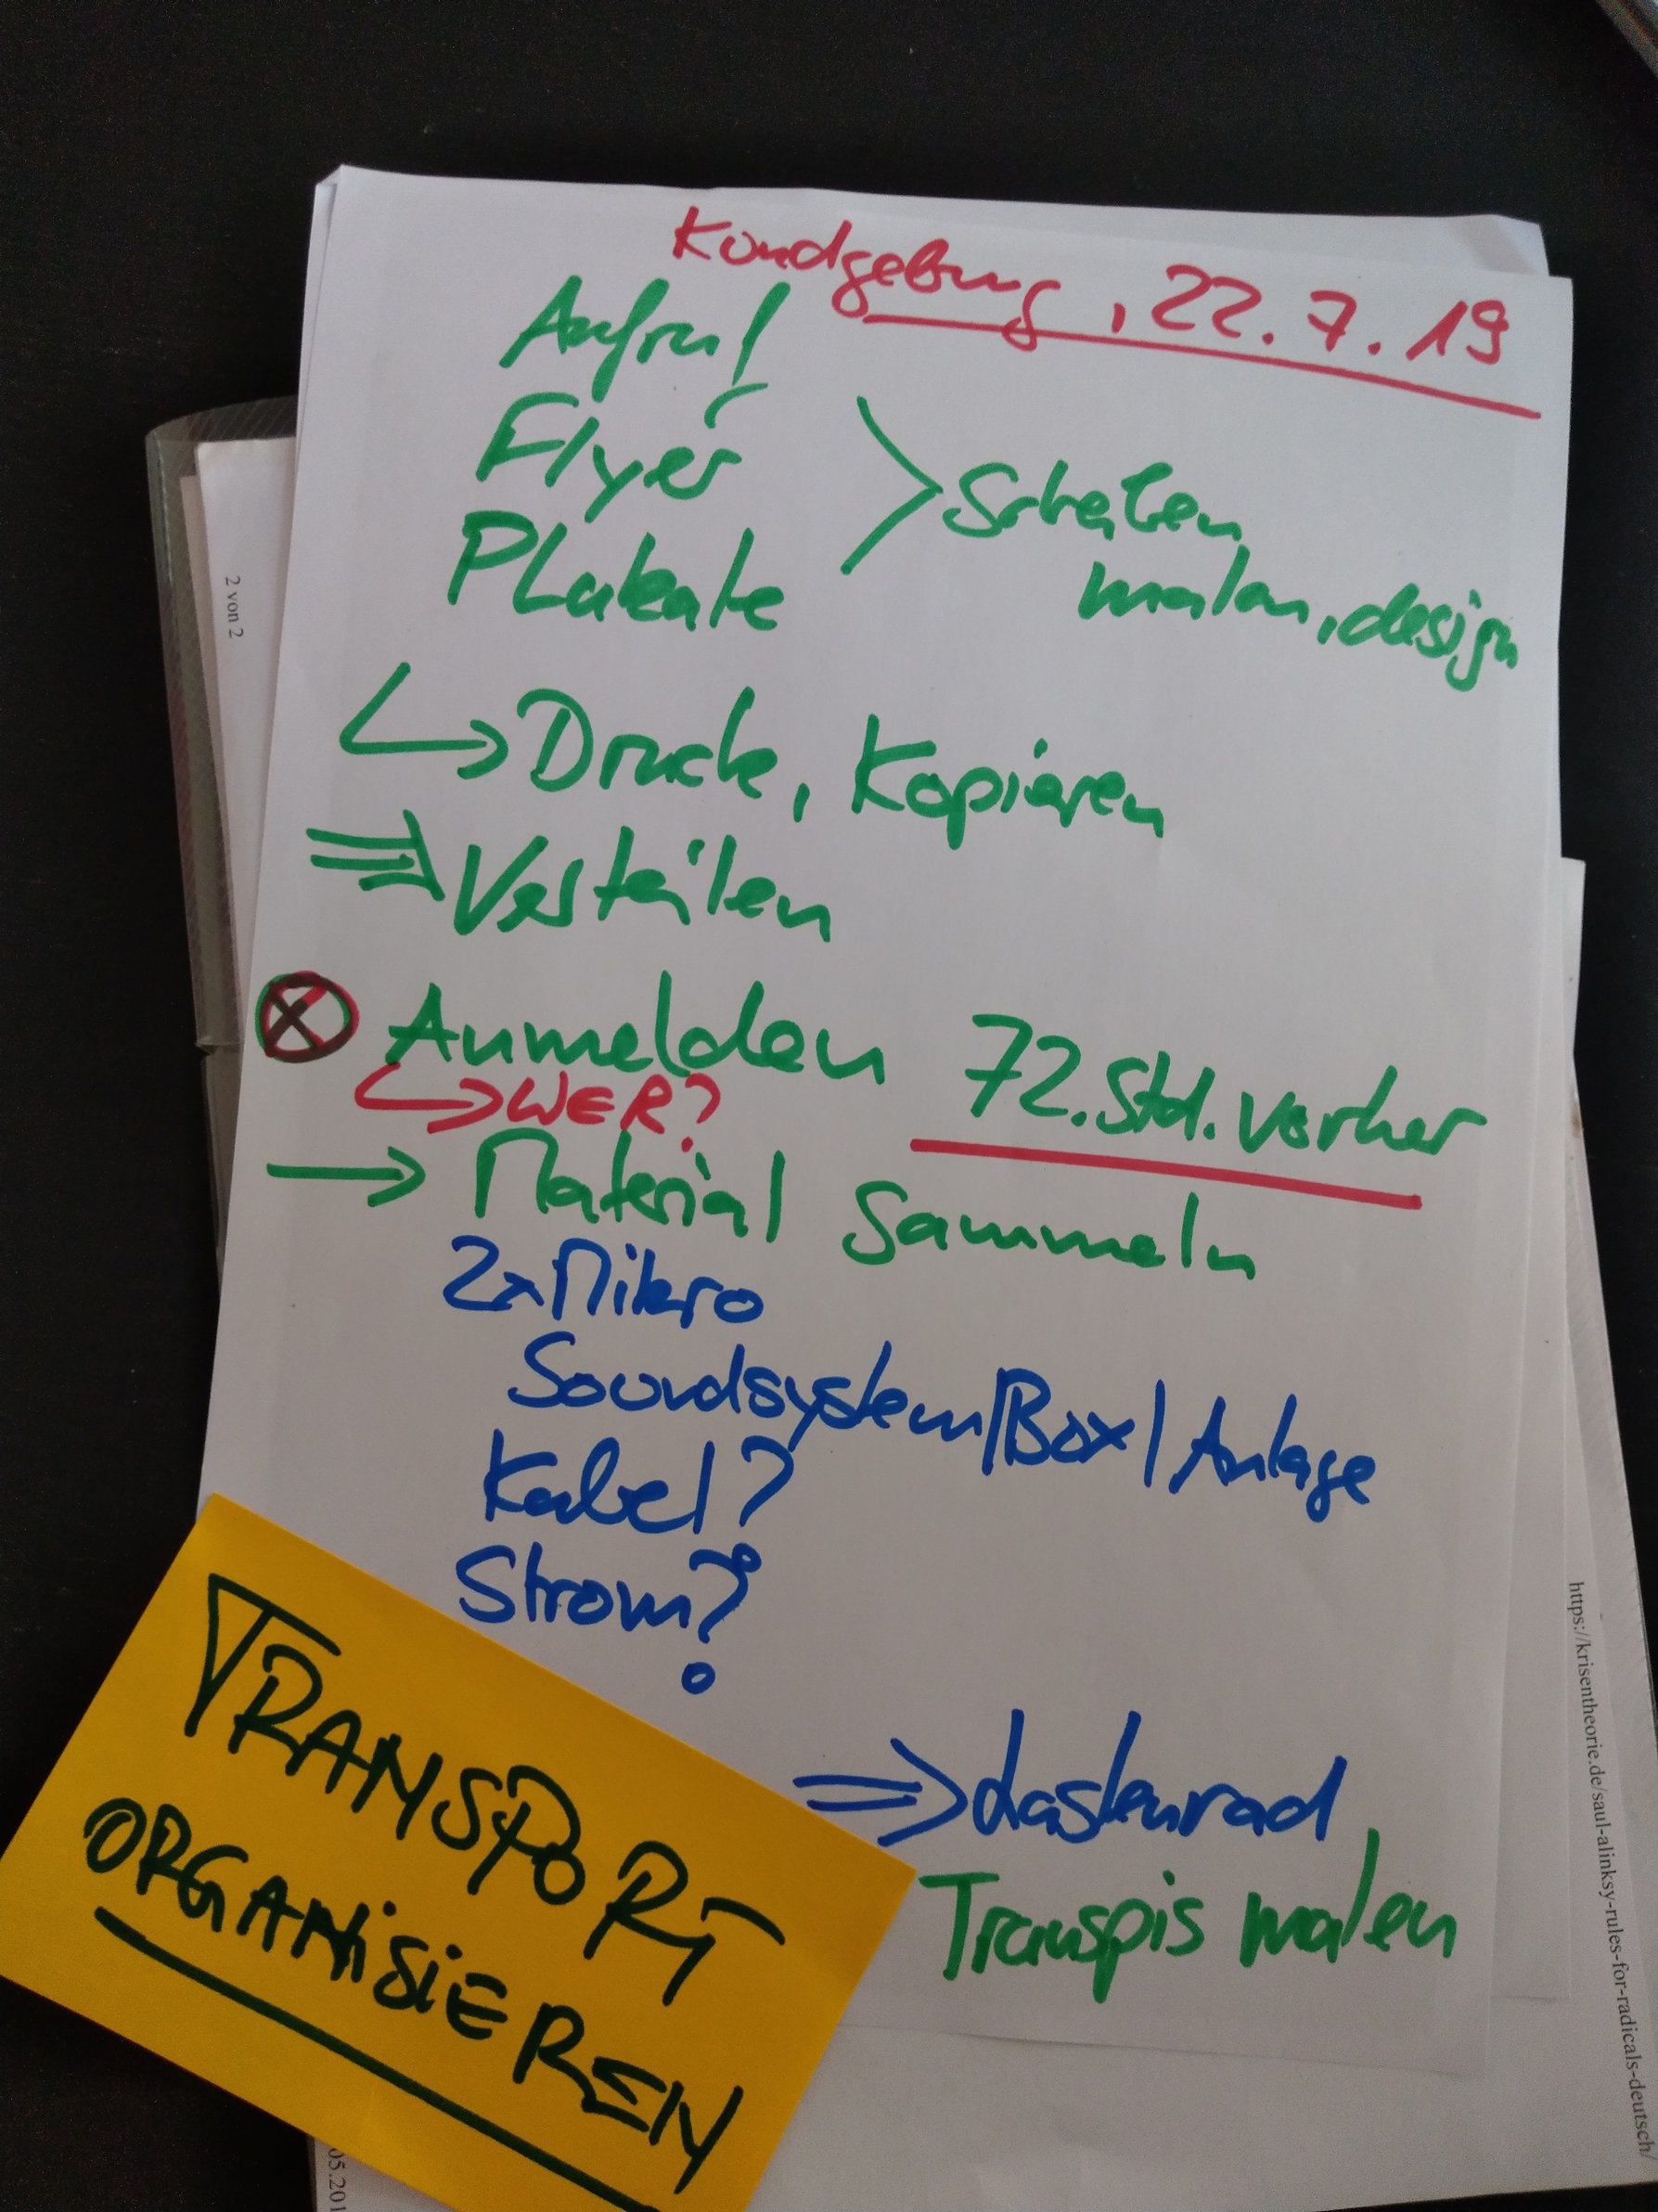 Kundgebung, 22.7.19
Aufruf
Flyer
PLakate
Schreiben,
malen, design
Drucke, Kopieren
Verteilen
Anmelden 72.Std. vorher
WER?
Material Sammeln
2x Mikro
Soundsystem/Box/Anlage
Kabel?
Strom?
Lastenrad,
Transpis malen
TRANSPORT
ORGANiSiEREN
2 von 2
https://krisentheorie.de/saul-alinksy-rules-for-radicals-deutsch/
05.201